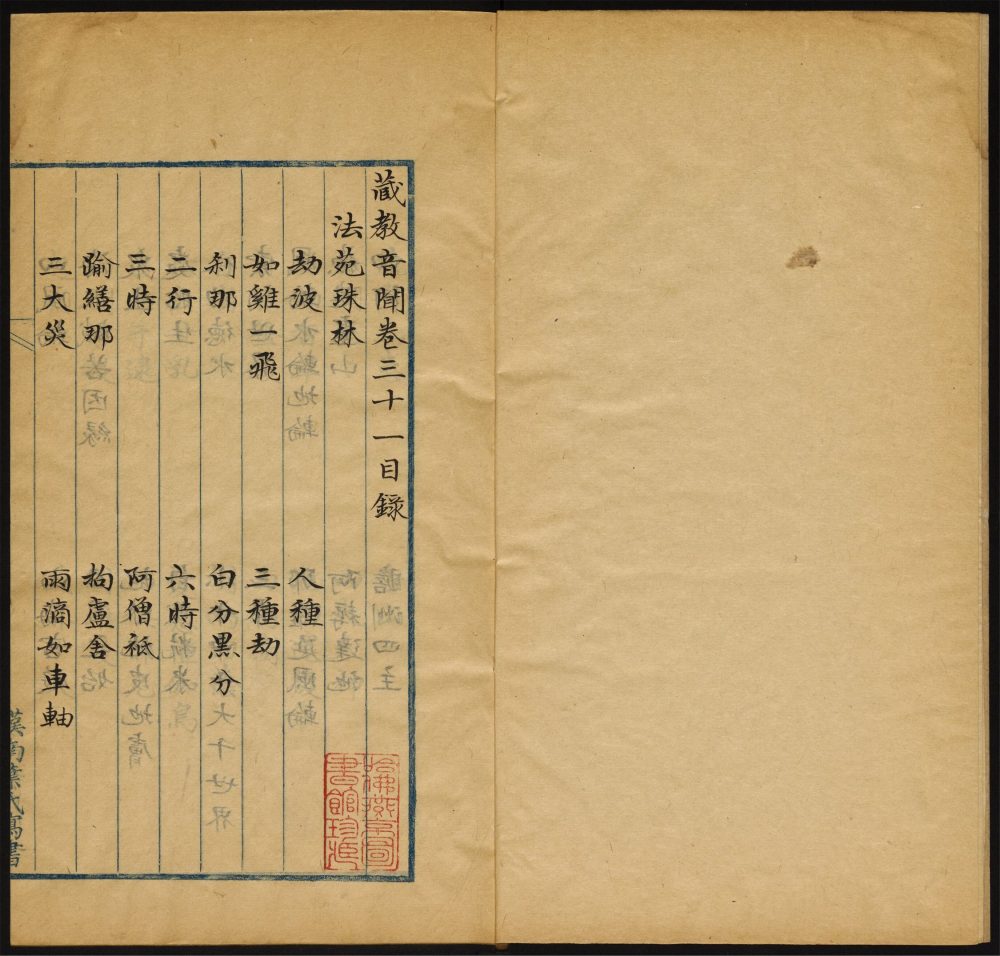 藏教音聞卷三十一目錄
法苑珠林
劫波 人種
如雞一飛 三種劫
刹那 白分黑分
二行 六時
三時 阿僧祇
踰繕那 拘盧舍
三大災 雨滴如車軸
漢南葉氏寫書
哈佛燕京圖書館珍藏